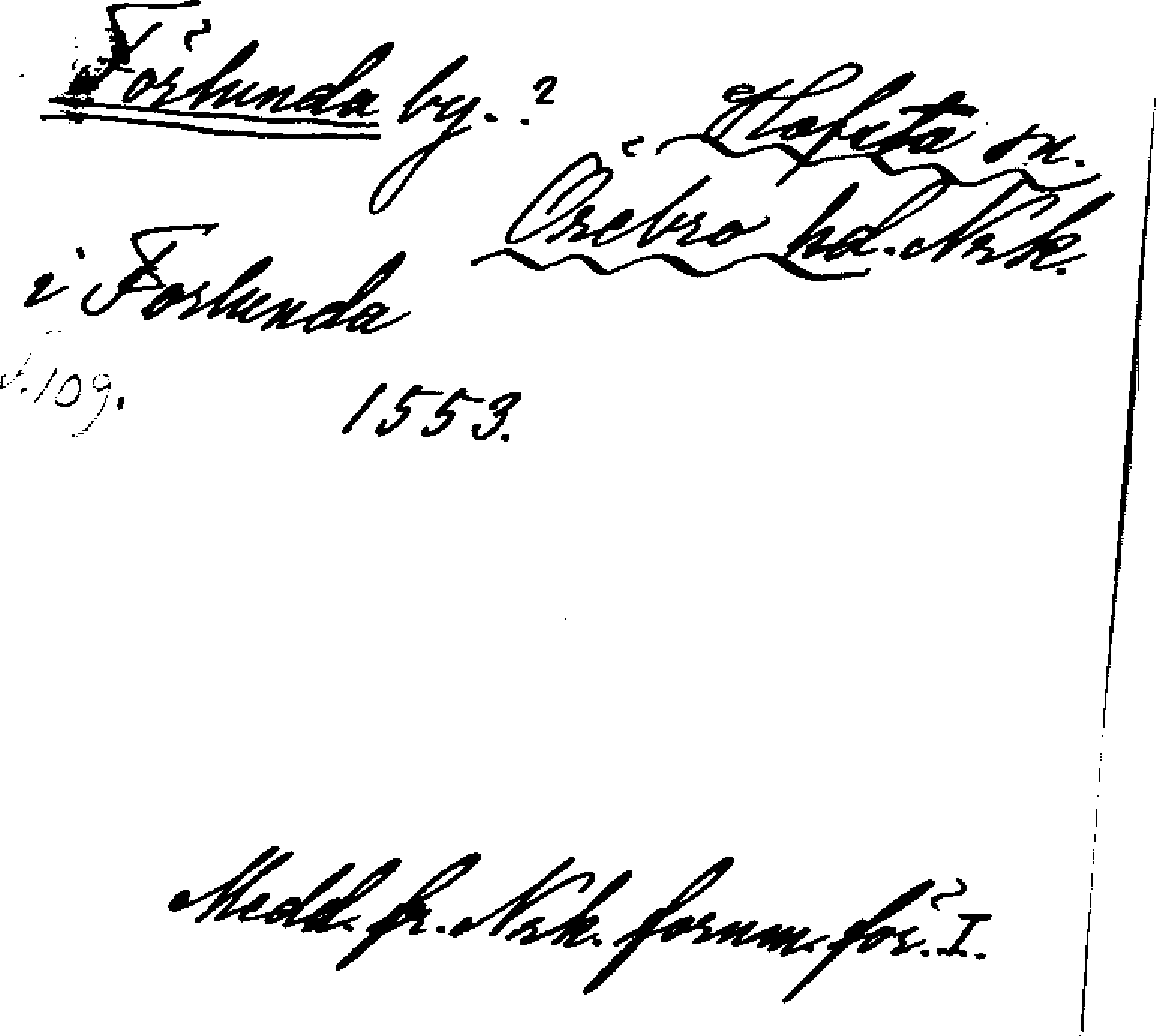 Förlunda by. ?
Hofsta sn.
Örebro hd. Nrk.
i Forlunda
s. 109.
1553.
Medd. fr. Nrk. fornm. för. I.